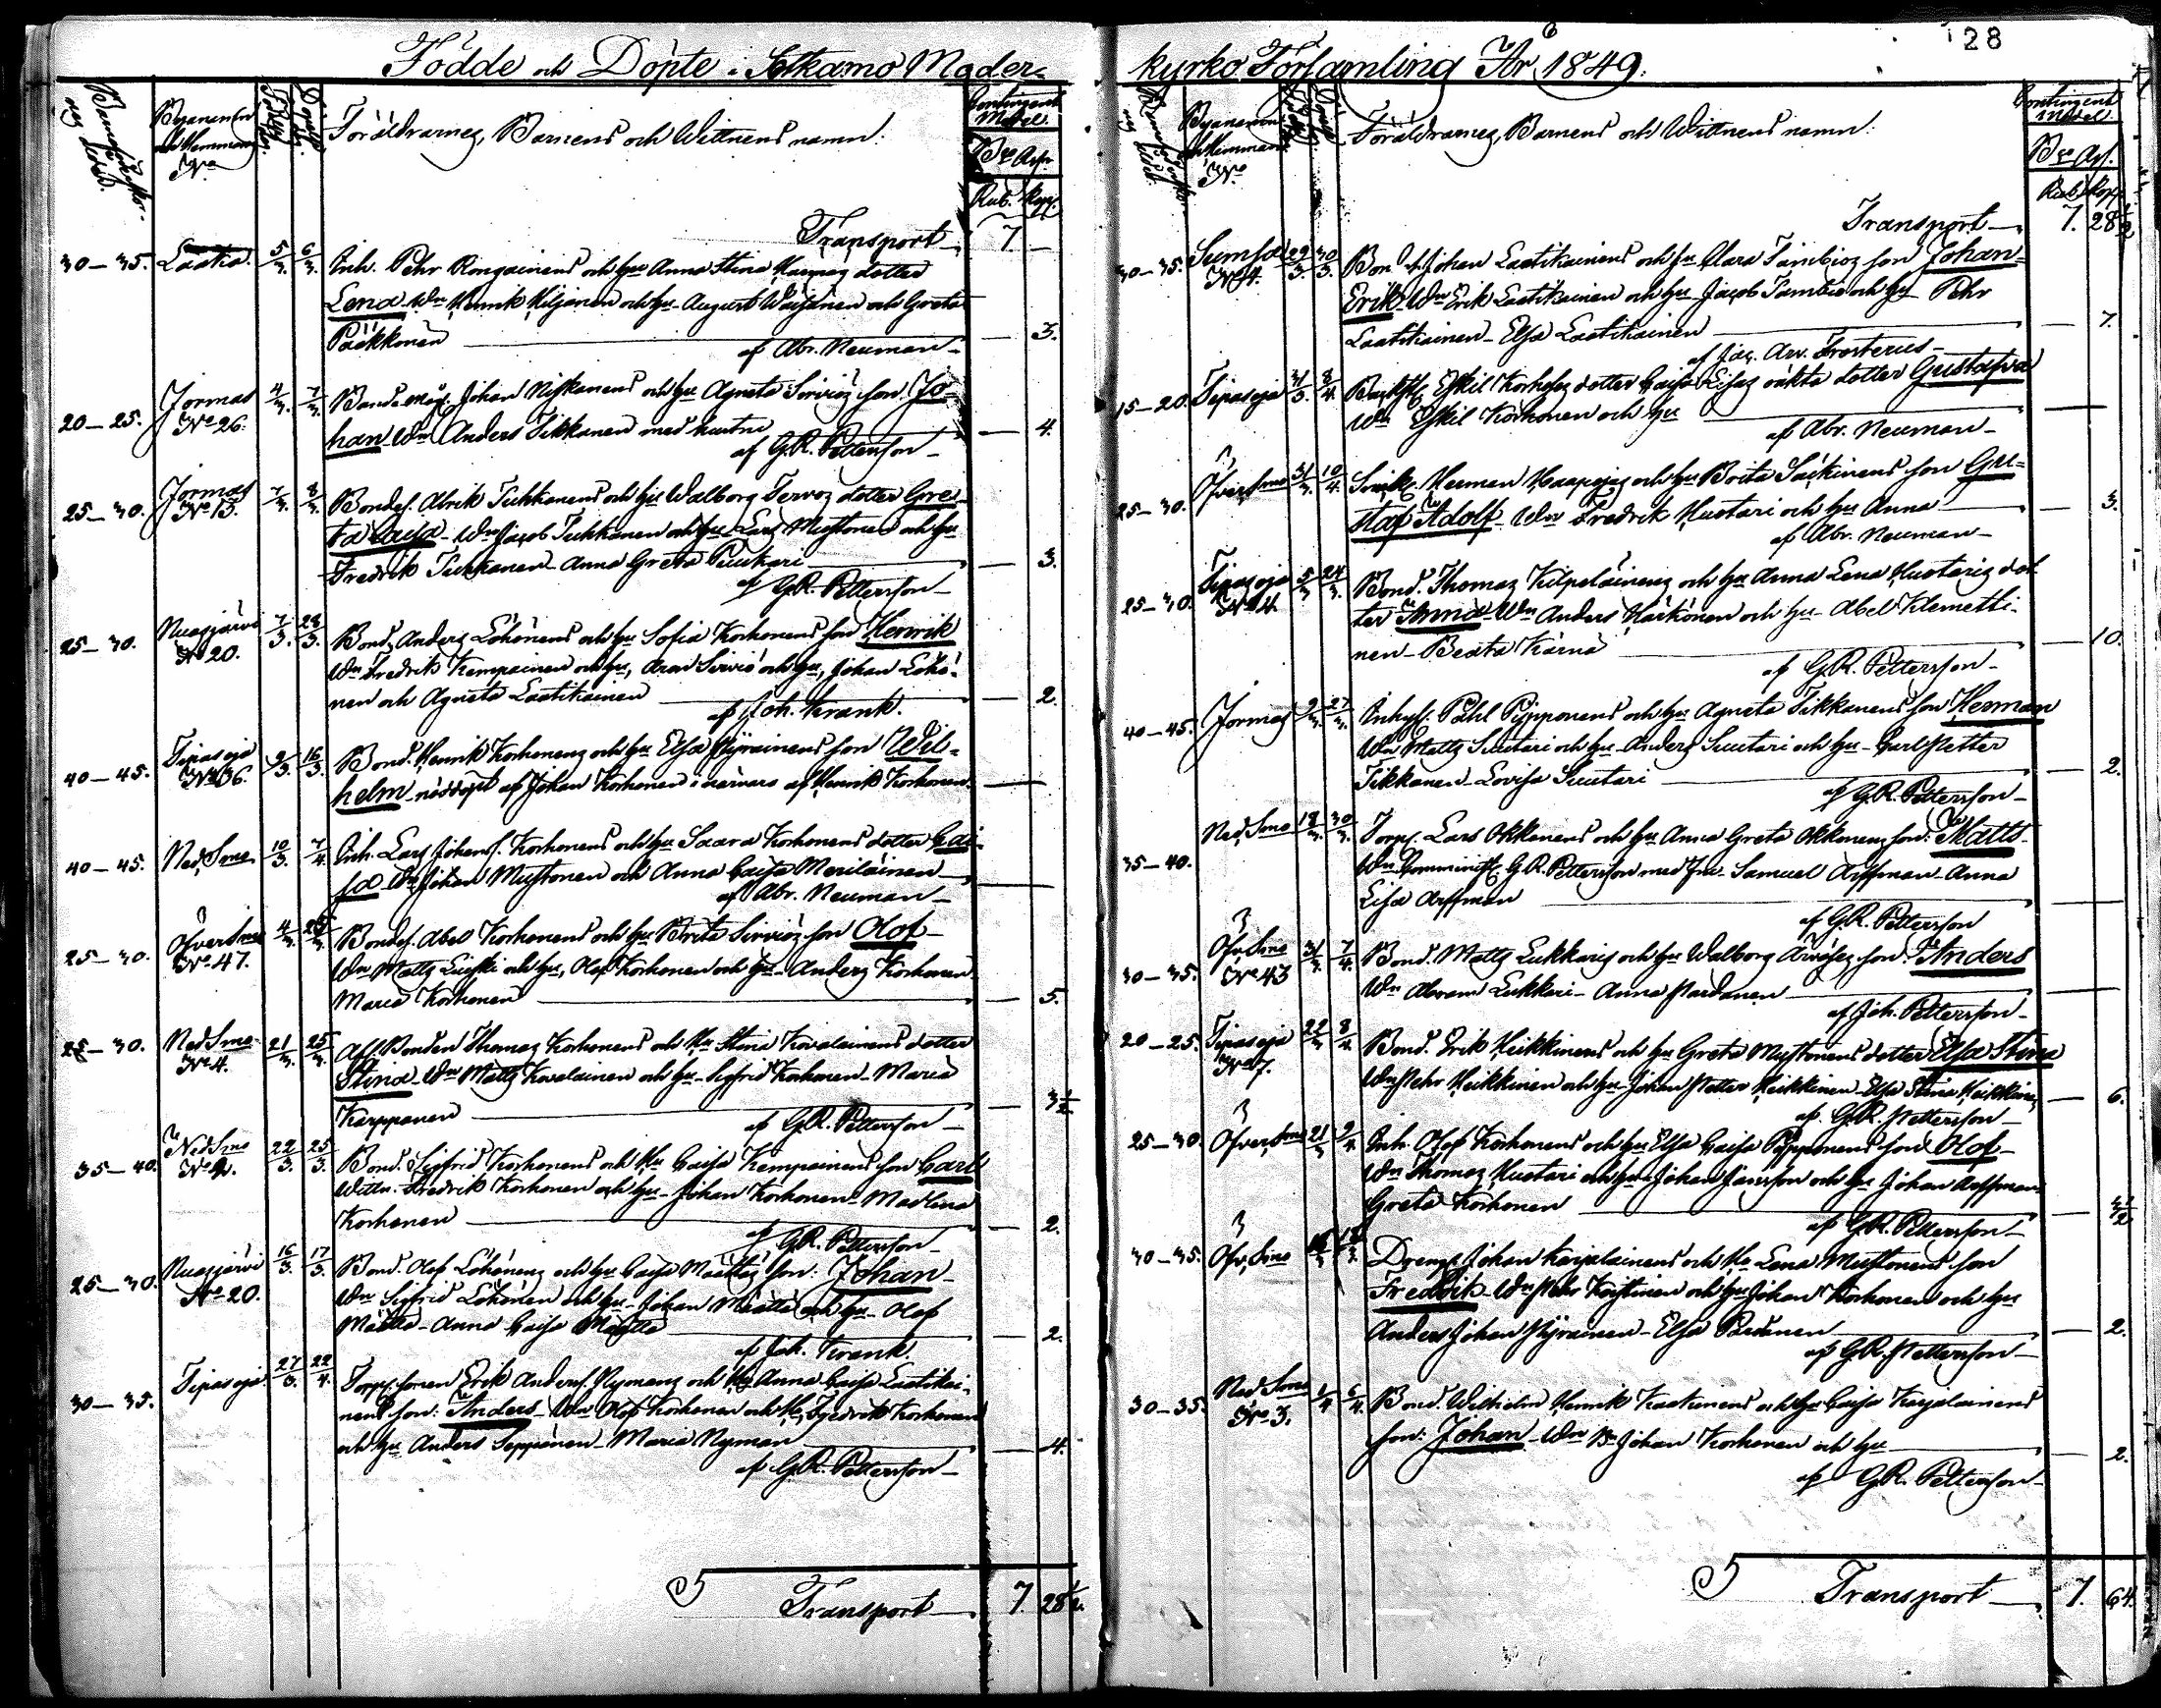 Födde och Döpte i Sotkamo Moder-
Barnsföderskornas ålder.
Byanamn och Hemmans No
Födde
Döpte
Föräldrarnes, Barnens och Wittnens namn.
Contingent Medel.
Bco Assn.
Rub. Kop.
Transport 7 —
30–35. Laatia. 5/3. 6/3. Inh. Pehr Rongainens och hu Anna Stina dotter
Lena Wn Henrik Kiljanen och hu August Väisänen och Greta
Pääkkönen — 3.
af Abr. Neuman
20–25. Jormas No 26. 4/3. 7/3. Bonde Johan Niskanens och hu Agneta Serviöz son Jo-
han Wn Anders Tikkanen med hustru — 4.
af G.R. Petterson
25–30. Jormas No 13. 7/3. 8/3. Bondes. Ulrik Tuhkanens och hu Walborg Tervoz dotter Gre-
ta Caisa Wn Jacob Tuhkanen och hu Lars Mustonen och hu
Fredrik Tuhkanen Anna Greta Puukari — 3.
af G.R. Petterson
25–30. Nuasjärvi No 20. 7/3. 28/3. Bond. Anders Löhönens och hu Sofia Korhonens son Henrik
Wn Fredrik Kempainen och hu, Arad Serviö och hu, Johan Löhö-
nen och Agneta Laatikainen — 2.
af Joh. Krank.
40–45. Tipasoja No 36. 9/3. 16/3. Bond. Henrik Korhonens och hu Elsa Pyräinens son Wil-
helm nöddöpt af Johan Korhonen i närvaro af Henrik Korhonen —
40–45. Ned. Smo 10/3. 7/4. Inh. Lars Johans. Korhonens och hu Saara Korhonens dotter Cai-
sa Wn Johan Mustonen och Anna Caisa Meriläinen —
af Abr. Neuman
25–30. Öfver Smo No 47. 4/3. 25/3. Bondes. Abel Korhonens och hu Brita Serviöz son Olof
Wn Matts Lieski och hu, Olof Korhonen och hu Anders Korhonen
Maria Korhonen — 5.
25–30. Ned Smo No 4. 21/3. 25/3. Afl. Bonden Thomas Korhonens och Hu Stina Kovalainens dotter
Stina Wn Matts Kovalainen och hu Sigfrid Korhonen Maria
Karppanen — 3 1/2
af G.R. Petterson
35–40. Ned Smo No 2. 22/3. 25/3. Bond. Sigfrid Korhonens och Hu Caisa Kempainens son Carl
Wittn. Fredrik Korhonen och hu Johan Korhonen Madlina
Korhonen — 2.
af G.R. Petterson
25–30. Nuasjärvi No 20. 16/3. 17/3. Bond. Olof Löhönens och hu Caisa Määttäs son: Johan
Wn Sigfrid Löhönen och hu Johan Määttä och hu Olof
Määttä Anna Caisa Määttä — 2.
af Joh. Krank.
30–35. Tipasoja 27/3. 22/4. Torps. sonen Erik Anders. Nymans och Hu Anna Caisa Laatikai-
nens son: Anders Wn Olof Korhonen och Hu, Fredrik Korhonen
och hu Anders Seppänen Maria Nyman — 4.
af G.R. Petterson
Transport 7. 28 1/2.
28
kyrko Församling År 1849.
Barnsföderskornas ålder.
Byanamn och Hemmans No
Födde
Döpte
Föräldrarnes, Barnens och Wittnens namn.
Contingent Medel.
Bco Ass.
Rub. Kop.
Transport 7. 28 1/2
30–35. Sumsa No 4. 29/3 30/3. Bond. Johan Laatikainens och hu Clara Tambioz son Johan
Erik Wn Erik Laatikainen och hu Jacob Tambio och hu Pehr
Laatikainen Elsa Laatikainen — 7.
af Jac. Arv. Frosterus
15–20. Tipasoja 31/3. 8/4. Eskil Korhosez dotter Caisa Lisas oäkta dotter Gustafva
Wn Eskil Korhonen och hu —
af Abr. Neuman
25–30. Öfver Smo 31/3. 10/4. Herman Haapojas och hu Brita Säckinens son Gu-
staf Adolf Wn Fredrik Huotari och hu Anna — 3.
af Abr. Neuman
25–30. Tipasoja No 4. 5/3 24/3. Bond. Thomas Kilpeläinens och hu Anna Lena Huotaris dot
ter Anna Wn Anders Härkönen och hu Abel Klemetti-
nen Beata Kärnä — 10.
af G.R. Petterson
40–45. Jormas 9/3. 27/3. Inhys. Påhl Piipponens och hu Agneta Tikkanens son Herman
Wn Matts Suutari och hu Anders Suutari och hu Carl Petter
Tikkanen Lovisa Suutari — 2.
af G.R. Petterson
35–40. Ned. Smo 18/3. 30/3. Torps. Lars Okkonens och hu Anna Greta Okkonens son: Matts
Wn Comminist. G.R. Petterson med fru Samuel Arffman Anna
Lisa Arffman —
af G.R. Petterson
30–35. Öfv. Smo No 43 31/3. 7/4. Bond. Matts Lukkaris och hu Walborg Arvosez son: Anders
Wn Abram Lukkari Anna Pardanen —
af Joh. Petterson
20–25. Tipasoja No 7. 22/3 8/4. Bond. Erik Heikkinens och hu Greta Mustonens dotter Elsa Stina
Wn Pehr Heikkinen och hu Johan Petter Heikkinen Elsa Stina Heikkinen — 6.
af G.R. Petterson
25–30. Öfver Smo 21/3 9/4. Inh. Olof Korhonens och hu Elsa Caisa Piipponens son Olof
Wn Thomas Huotari och hu Johan Jansson och hu Johan Arffman
Greta Korhonen — 3 1/2
af G.R. Petterson
30–35. Öfv. Smo Dreng. Johan Karjalainens och Hu Lena Mustonens son
Fredrik Wn Pehr Koistinen och hu Johan Korhonen och hu
Anders Johan Pyräinen Elsa Pardanen — 2.
af G.R. Petterson
30–35. Ned Smo No 3. 1/4 6/4. Bond. Wilhelm Henrik Kaakinens och hu Caisa Karjalainens
son: Johan Wn Johan Korhonen och hu — 2.
af G.R. Petterson
Transport 7. 64.